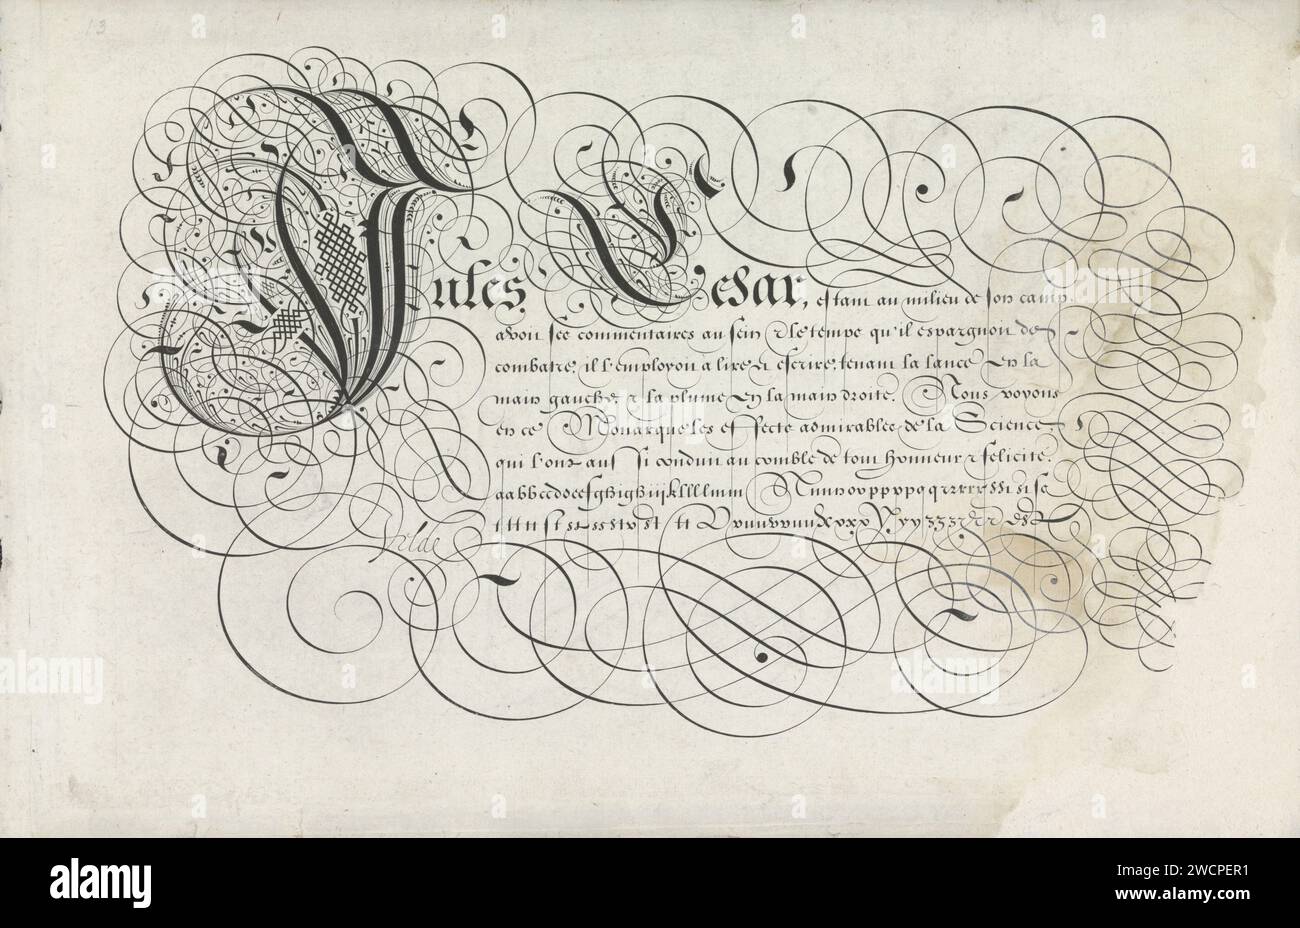 13
Jules Cesar, estant au milieu de son camp
avoit ses commentaires au sein & le temps qu'il espargnoit de
combatre, il l'employoit a lire et escrire, tenant la lance en la
main gauche & la plume en la main droite. Nous voyons
en ce Monarque les effects admirables de la Science
qui l'ont aussi conduit au comble de tout honneur & felicité.
Velde
alamy
Image ID: 2WCPER1
www.alamy.com